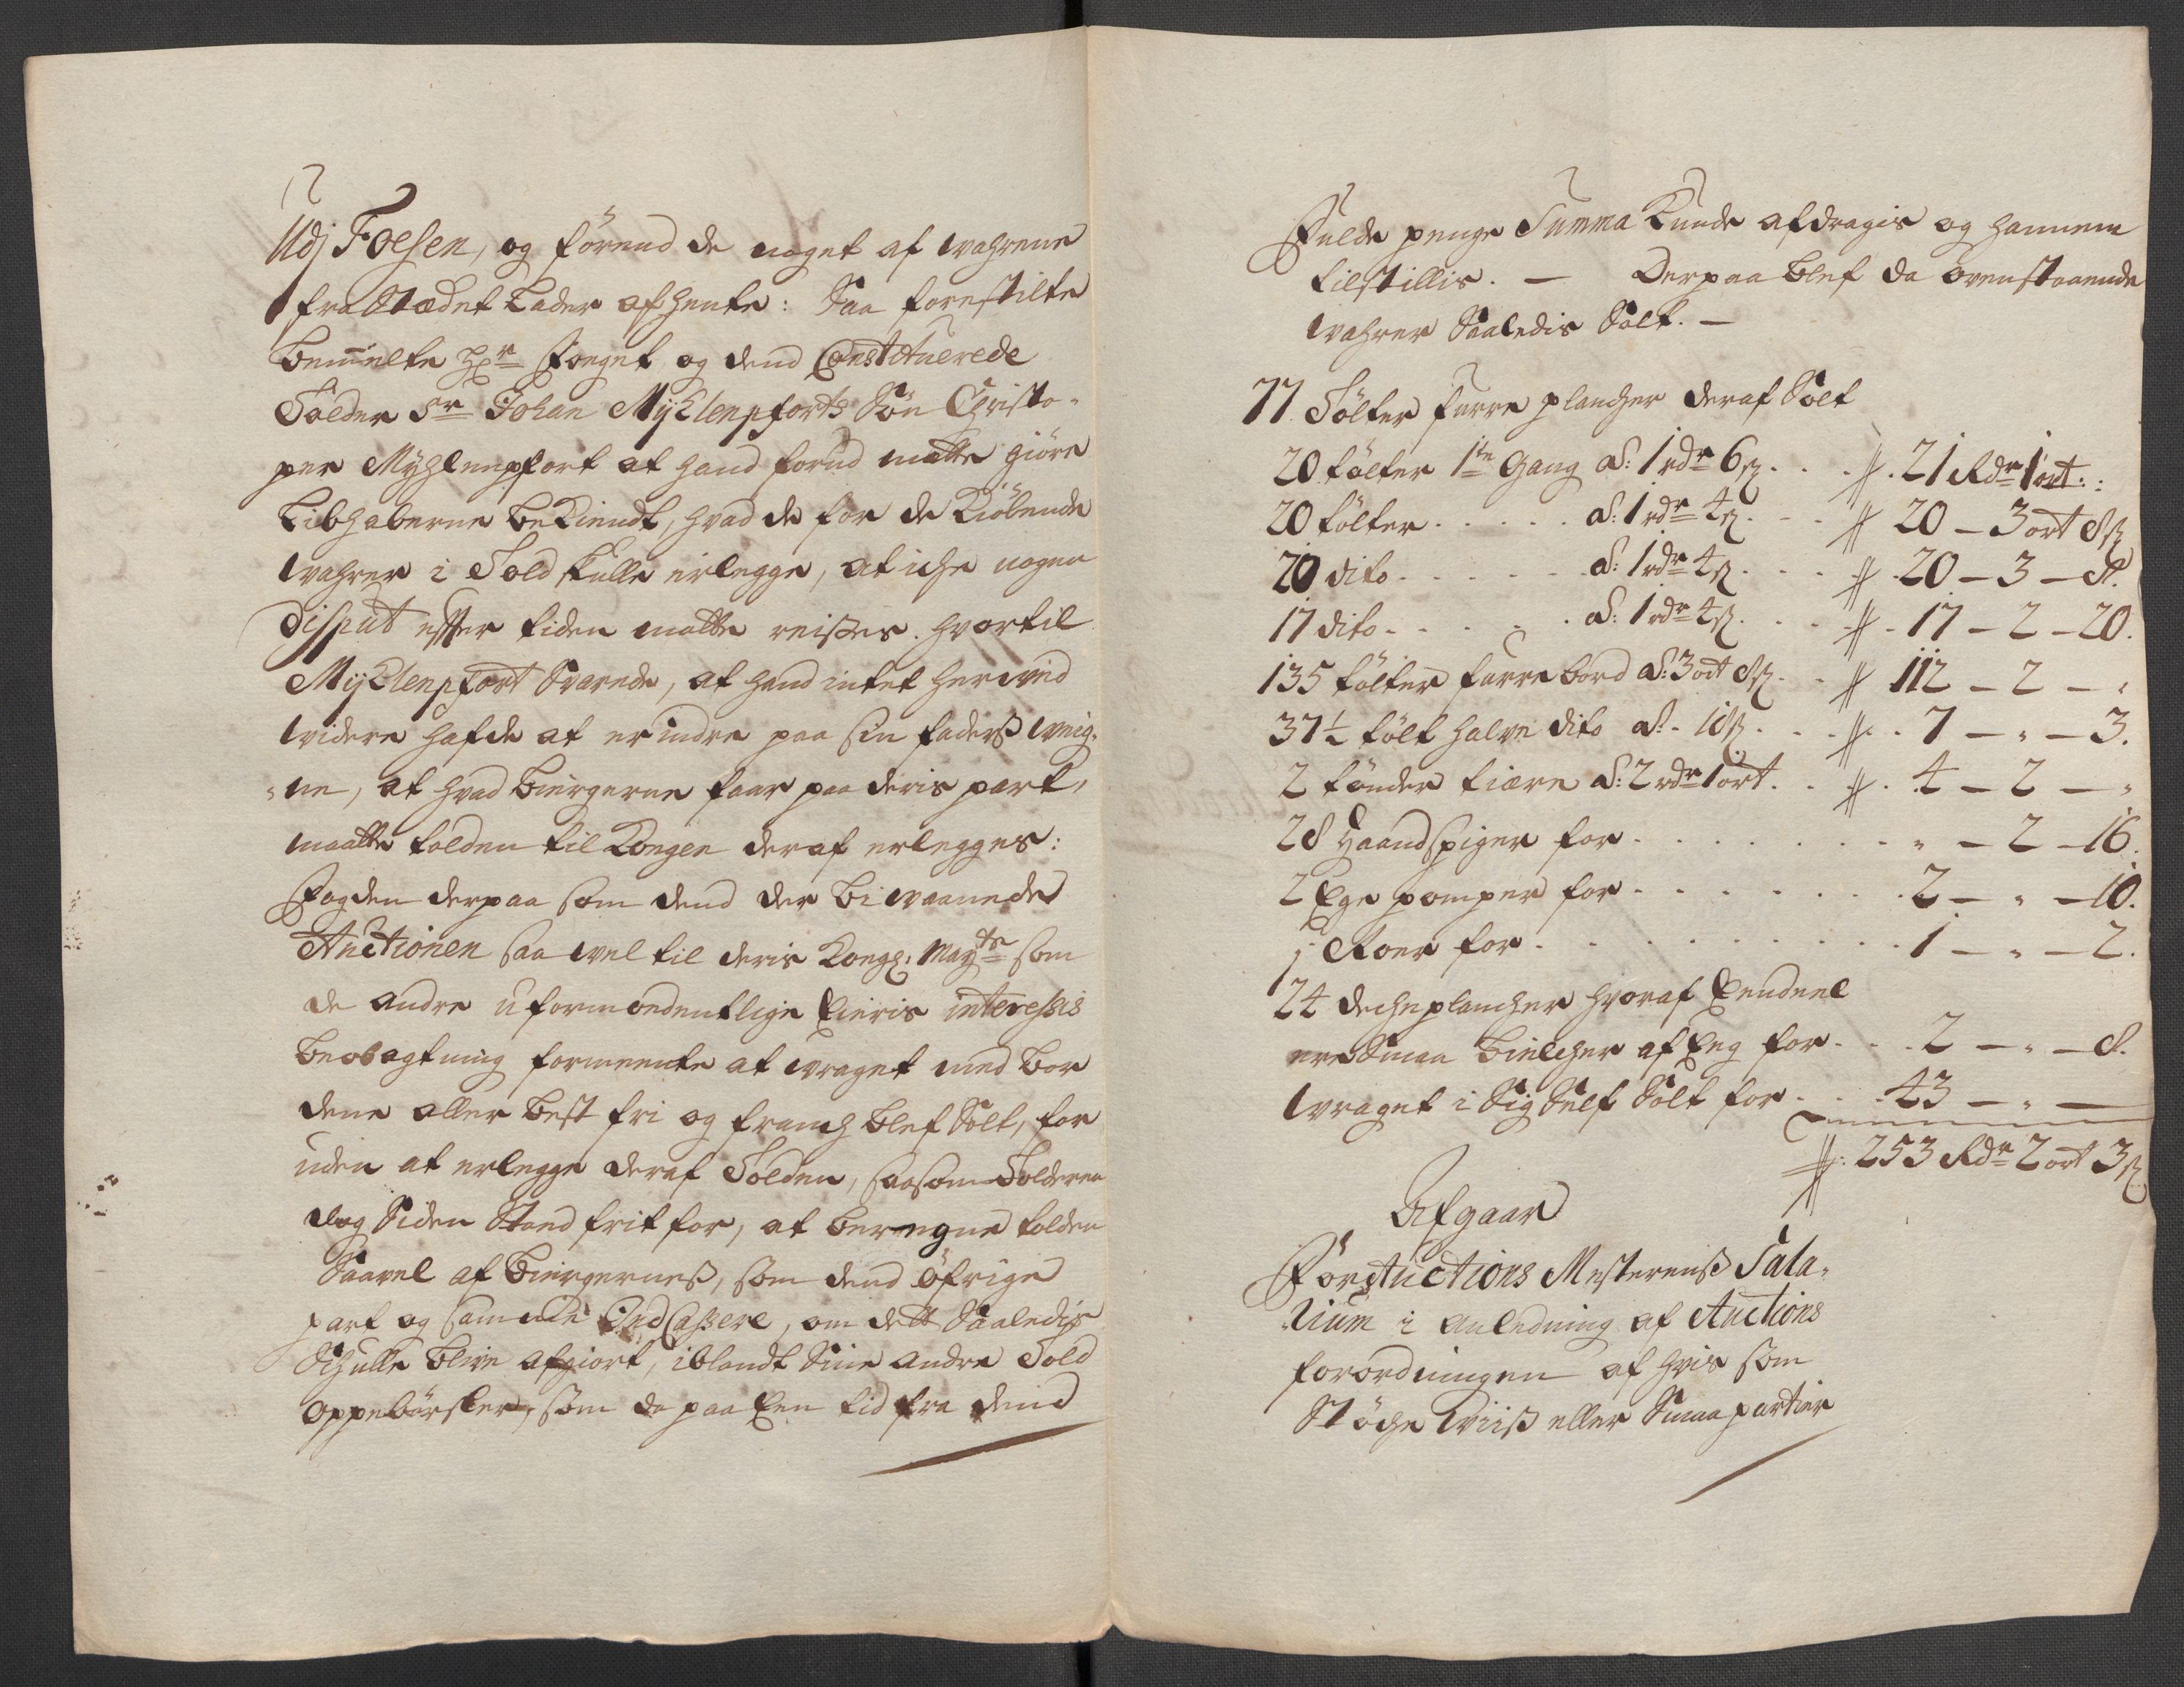 Udj Foesen, og förend de noget af wahrene
fra Stædet Lader afhente: Saa forestilte
bemelte Hr Foeget og dend Constituerede
Tolder Sr Johan Myhlenpforts Sön Christo-
per Myhlenpfort at hand forud matte giöre
Libhaberne bekiendt, hvad de for de Kiöbende
wahrer i Told skulle erlegge, at iche nogen
Disput effter tiden matte reises. hvortil
Myhlenpfort Svarede, at hand intet herved
widere hafde at erindre paa sin faders weig-
ne, at hvad biergerne faar paa deris part,
maatte tolden til Kongen deraf erlegges:
Fogden derpaa som dend der bi waanede
Auctionen saa wel til deris Kongl: Mayts som
de andre uformodentlige Eieris interessis
beobagtning formeente at wraget med bor
dene aller best fri og franch blef Solt, for
uden at erlegge deraf Tolden, saasom Tolderen
dog Siden Stand frit for, at beregne tolden
Saavel af biergernes, som dend öfrige
part og samme Ind Cassere, om dett Saaledis
Schulle blive afgiort, iblandt Sine andre Told
oppebörsler, som da paa Een tid fra dend
Fulde penge Summa Kunde afdragis og hannem
tilstillis. — Derpaa blef da ovenstaaende
wahrer Saaledis Solt. —
77 Tölter furre plancher deraf Solt
20 tölter 1te Gang a: 1 rdr 6 ß . . 21 Rdr 1 ort :
20 tölter . . . . a: 1 rdr 4 ß . . 20 – 3 ort 8 ß
20 dito . . . . . a: 1 rdr 4 ß . . 20 – 3 – 8.
17 dito . . . . . a: 1 rdr 4 ß . . 17 – 2 – 20.
135 tölter furre bord a: 3 ort 8 ß . . 112 – 2 – "
37½ tölt halve dito a: 18 ß . . . 7 – " – 3.
2 tönder tiære a: 2 rdr 1 ort . . 4 – 2 – "
28 Haandspiger for . . . . . . " – 2 – 16.
2 Ege pomper for . . . . . . 2 – " – 10.
1 Roer for . . . . . . . . . 1 – " – 2.
24 decheplancher hvoraf Eendeel
ere Smaa bielcher af Eeg for . . . 2 – " – 8.
wraget i Sig Self Solt for . . . 43 – " –
253 Rdr 2 ort 3 ß
Afgaar
For Auctions Mesterens Sala-
rium i anledning af Auctions
forordningen af hvis som
Stöche wiis eller Smaa partier